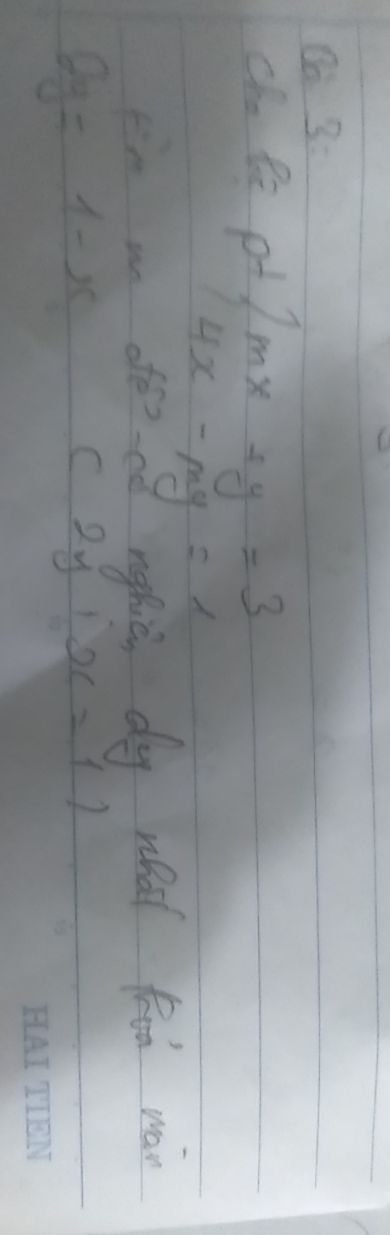 Bài 3:
Cho hệ pt { mx + y = 3
4x - my = 1
tìm m để có nghiệm duy nhất thoả mãn
2y = 1 - x ( 2y + x = 1 )
HAI TIEN